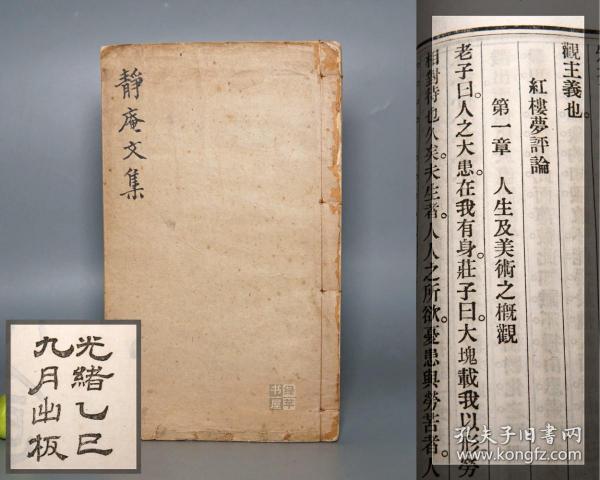 靜庵文集
光緒乙巳
九月出板
觀主義也。
紅樓夢評論
第一章 人生及美術之概觀
老子曰。人之大患在我有身。莊子曰。大塊載我以形勞
相對待也久矣。夫生者。人人之所欲。憂患與勞苦者。人
孔夫子旧書网
www.kongfz.com